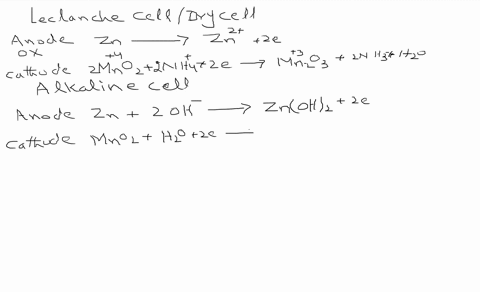 Leclanche Cell/Dry cell
Anode Zn → Zn²⁺ + 2e
OX +4 +3
Cathode 2MnO₂ + 2NH₄⁺ + 2e → Mn₂O₃ + 2NH₃ + H₂O
Alkaline cell
Anode Zn + 2OH⁻ → Zn(OH)₂ + 2e
Cathode MnO₂ + H₂O + 2e —